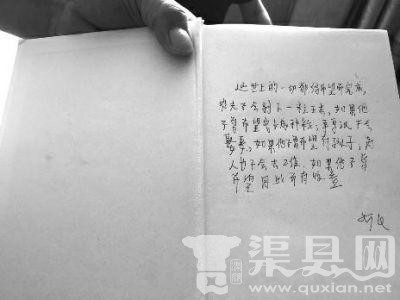 这世上的一切都借希望而完成,
农夫不会剥下一粒玉米,如果他
不曾希望它长成种粒;单身汉不会
娶妻,如果他不曾希望有孩子;商
人也不会去工作,如果他不曾
希望因此而有收益
渠县网
www.quxian.net